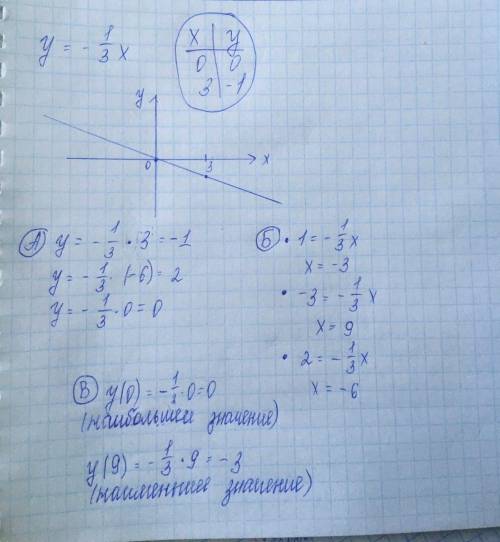 y = - 1/3 x
x | y
0 | 0
3 | -1
y
0 3 x
А) y = - 1/3 · 3 = -1
y = - 1/3 · (-6) = 2
y = - 1/3 · 0 = 0
Б) · 1 = - 1/3 x
x = -3
· -3 = - 1/3 x
x = 9
· 2 = - 1/3 x
x = -6
В) y(0) = - 1/3 · 0 = 0
(наибольшее значение)
y(9) = - 1/3 · 9 = -3
(наименьшее значение)